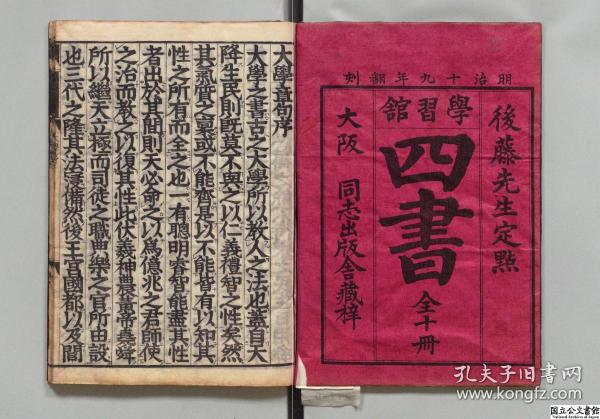 明治十九年翻刻
後藤先生定點
學習館
四書
全十冊
大阪 同志出版舎藏梓
大學章句序
大學之書古之大學所以教人之法也蓋自天
降生民則既莫不與之以仁義禮智之性矣然
其氣質之稟或不能齊是以不能皆有以知其
性之所有而全之也一有聰明睿智能盡其性
者出於其間則天必命之以爲億兆之君師使
之治而教之以復其性此伏羲神農黃帝堯舜
所以繼天立極而司徒之職典樂之官所由設
也三代之隆其法寖備然後王宮國都以及閭
孔夫子旧书网
www.kongfz.com
国立公文書館
National Archives of Japan